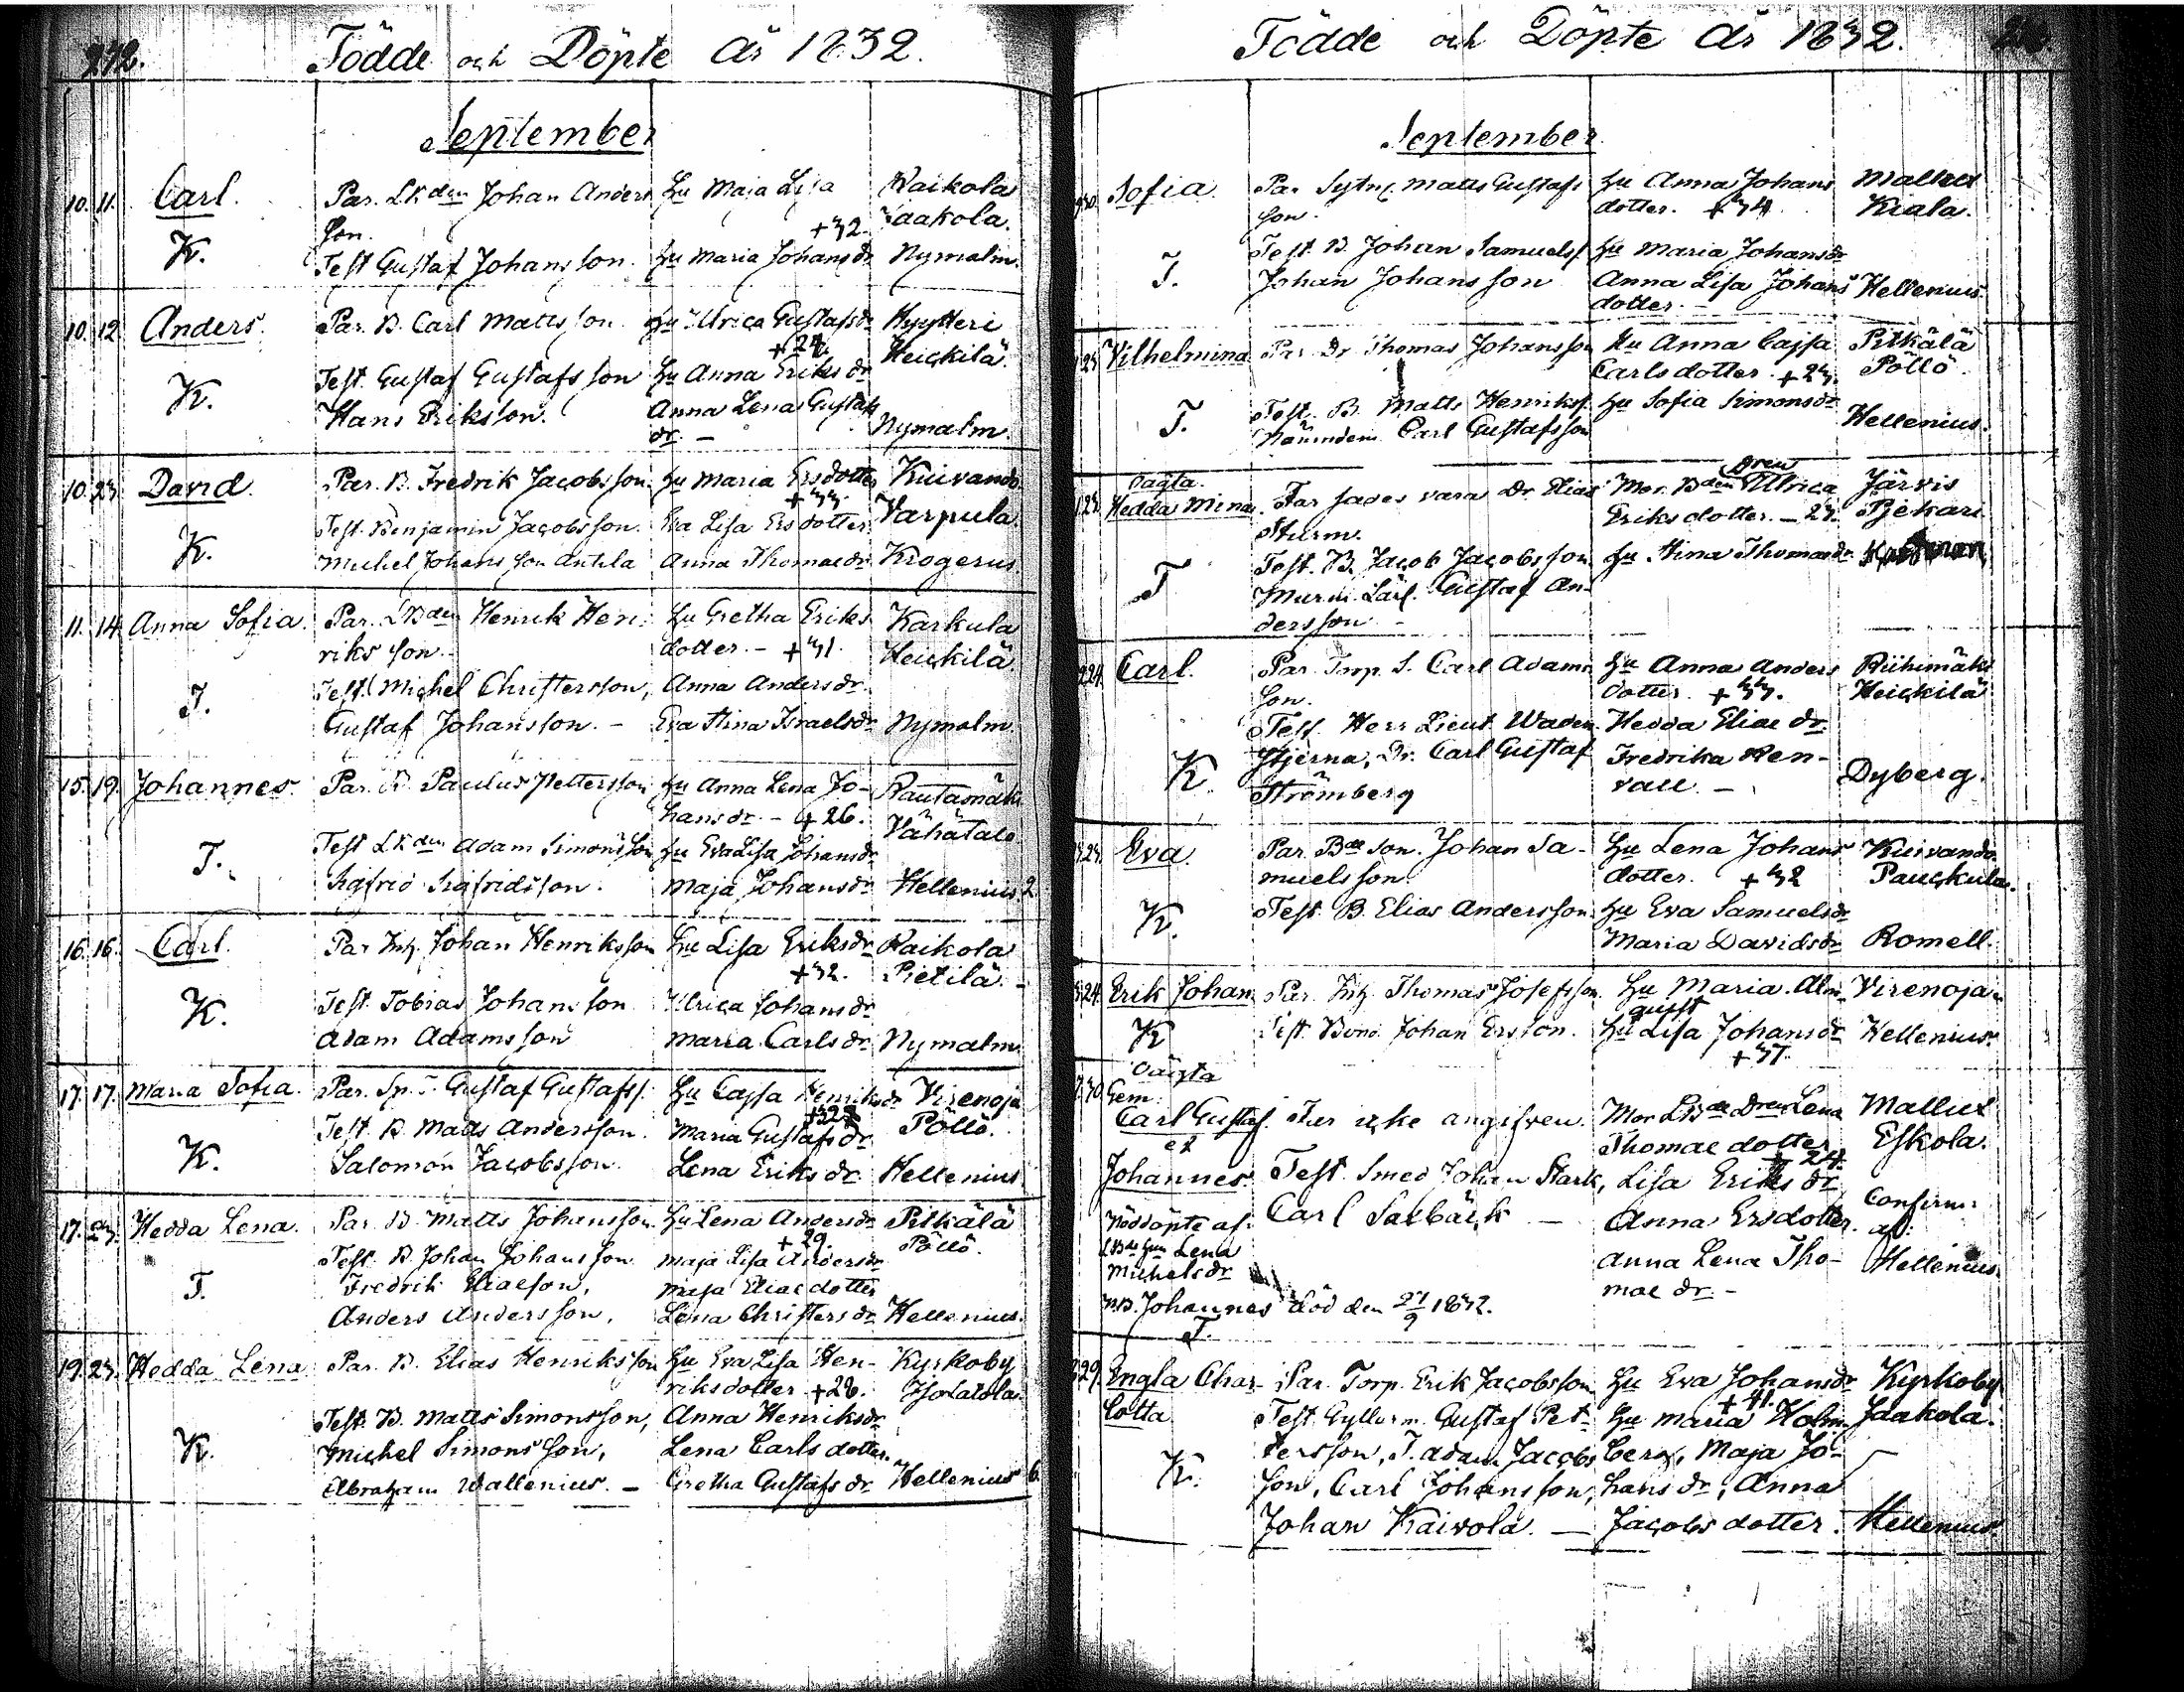 272.
Födde och Döpte år 1832.
September
10. 11. Carl. Par. LBden Johan Anders Hu Maja Lisa Kaikola
son. +32. Jaakola.
K. Test Gustaf Johansson. Hu Maria Johansdr Nymalm.
10. 12. Anders. Par. B. Carl Mattsson. Hu Ulrica Gustafsdr Kyytteri
+ 24. Heickilä.
Test. Gustaf Gustafsson Hu Anna Eriksdr
K. Hans Eriksson. Anna Lena Gustafs
dr. — Nymalm.
10. 23. David. Par. B. Fredrik Jacobsson. Hu Maria Ersdotter Kuivando
+ 33. Varpula
Test. Benjamin Jacobsson. Eva Lisa Ersdotter
K. Michel Johansson Anttila Anna Thomaedr Krogerus
11. 14 Anna Sofia. Par. LBden Henrik Hen- Hu Gretha Eriks Karkula
riksson. dotter. – +31. Heickilä.
Test. Michel Christersson, Anna Andersdr.
T. Gustaf Johansson. – Eva Stina Israelsdr Nymalm
15. 19. Johannes. Par. B. Paulus Pettersson Hu Anna Lena Jo- Rautamäki
hansdr. – + 26. Vähätalo
Test LBden Adam Simonsson Hu Eva Lisa Johansdr
T. Sigfrid Sigfridsson. Maja Johansdr Hellenius 2
16. 16. Carl. Par Inh. Johan Henriksson Hu Lisa Eriksdr Kaikola
+32. Pietilä.
K. Test. Tobias Johansson Ulrica Johansdr
Adam Adamsson Maria Carlsdr Nymalm
17. 17. Maria Sofia. Par. Sp. T. Gustaf Gustafss. Hu Cajsa Henriksdr Virenoja
Test. B. Matts Andersson. Maria Gustafsdr Pöllö.
K. Salomon Jacobsson. Lena Eriksdr. Hellenius
17. 23. Hedda Lena. Par. B. Matts Johansson. Hu Lena Andersdr Pitkälä
+ 29. Pöllö.
Test. B. Johan Johansson Maja Lisa Andersdr
T. Fredrik Eliaeson, Maja Eliaedotter
Anders Andersson, Lena Christersdr Hellenius.
19. 23. Hedda Lena Par. B. Elias Henriksson Hu Eva Lisa Hen- Kyrkoby
riksdotter +28.
Test. B. Matts Simonsson, Anna Henriksdr
K. Michel Simonsson, Lena Carlsdotter.
Abraham Wallenius. – Gretha Gustafsdr. Hellenius 6
Födde och Döpte år 1832.
September
30. Sofia. Par Sytn. Matts Gustafs Hu Anna Johans Mallux
son. dotter. +34. Kiala.
Test. B. Johan Samuelss. Hu Maria Johansdr
T. Johan Johansson Anna Lisa Johans Hellenius
dotter. –
23 Vilhelmina Par. Dr. Thomas Johansson Hu Anna Cajsa Pitkälä
Carlsdotter. +23. Pöllö.
Test. B. Matts Henrikss. Hu Sofia Simonsdr
T. Nämndem. Carl Gustafsson Hellenius.
Oägta.
23. Hedda Mina. Far sades vara Dr. Elias Mor. Bden Dren Ulrica Järvis
Sturm. Eriksdotter. – 23. Pjekari
Test. B. Jacob Jacobsson Hu Stina Thomaedr
T Murm. Lärl. Gustaf An-
dersson –
24. Carl. Par. Torp. S. Carl Adams Hu Anna Anders Riihimäki
son. dotter. +33. Heickilä
Test. Herr Lieut. Waden- Hedda Eliaedr.
K. stjerna, Dr. Carl Gustaf Fredrika Ren-
Strömberg vall. – Dyberg.
23. Eva. Par. Bde son. Johan Sa- Hu Lena Johans Kuivando
muelsson. dotter. +32 Pauckula.
K. Test. B. Elias Andersson. Hu Eva Samuelsdr
Maria Davidsdr Romell.
24. Erik Johan Par. Inh. Thomas Josefsson. Hu Maria Alm- Virenoja
quist
K Test. Bond. Johan Ersson. Hu Lisa Johansdr Hellenius.
+37.
Oägta
30. Gem.
Carl Gustaf. Far icke angifven. Mor LBde Dren Lena Mallux
et Thomaedotter Eskola.
+ 24.
Johannes Test. Smed Johan Stark, Lisa Eriksdr
Nöddöpte af Carl Salbäck – Anna Ersdotter. Confirm:
LBde hun Lena af:
Michelsdr Anna Lena Tho- Hellenius
NB. Johannes död den 27/9 1832. maedr. –
T.
29. Engla Char- Par. Torp. Erik Jacobsson Hu Eva Johansdr Kyrkoby
+ 41.
lotta Test. Gustaf Pet- Hu Maria Holm- Jaakola.
tersson, T. Adam Jacobs berg, Maja Jo-
K. son, Carl Johansson, hansdr, Anna
Johan Kaivola. — Jacobsdotter. Hellenius.